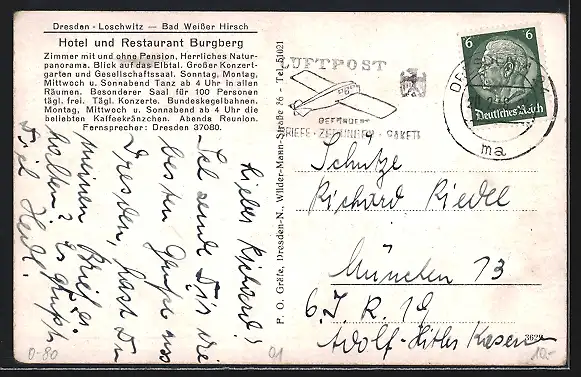 Dresden - Loschwitz — Bad Weißer Hirsch
Hotel und Restaurant Burgberg
Zimmer mit und ohne Pension. Herrliches Natur-
panorama. Blick auf das Elbtal. Großer Konzert-
garten und Gesellschaftssaal. Sonntag, Montag,
Mittwoch u. Sonnabend Tanz ab 4 Uhr in allen
Räumen. Besonderer Saal für 100 Personen
tägl. frei. Tägl. Konzerte. Bundeskegelbahnen.
Montag, Mittwoch u. Sonnabend ab 4 Uhr die
beliebten Kaffeekränzchen. Abends Reunion.
Fernsprecher: Dresden 37080.
Lieber Richard!
Ich sende Dir die
besten Grüße aus
Dresden, hast Du
meinen Brief
erhalten? Es grüßt
Dich
P. O. Gräfe, Dresden-N., Wilder-Mann-Straße 76 - Tel. 51021
LUFTPOST
BEFÖRDERT
BRIEFE · ZEITUNGEN · PAKETE
6 6
Deutsches Reich
ma
Schütze
Richard Riedel
München 13
6. I. R. 19
Adolf-Hitler Kaserne
3629
0-80
01
10.-